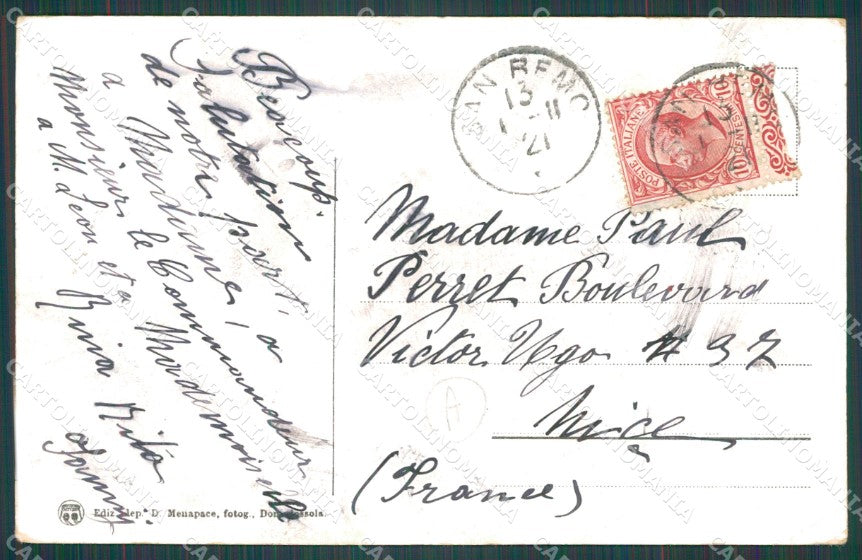 Beacoup.
Salutation
de notre part, a
Madame,
Monsieur le Commandeur
a Mademoiselle
a M. Léon et a Rina Rita
SAN REMO
13
21
POSTE ITALIANE
Madame Paul
Perret Boulevard
Victor Ugo # 37
Nice
(France)
A
Ediz. dep. D. Menapace, fotog., Domodossola.
CARTOLINOMANIA